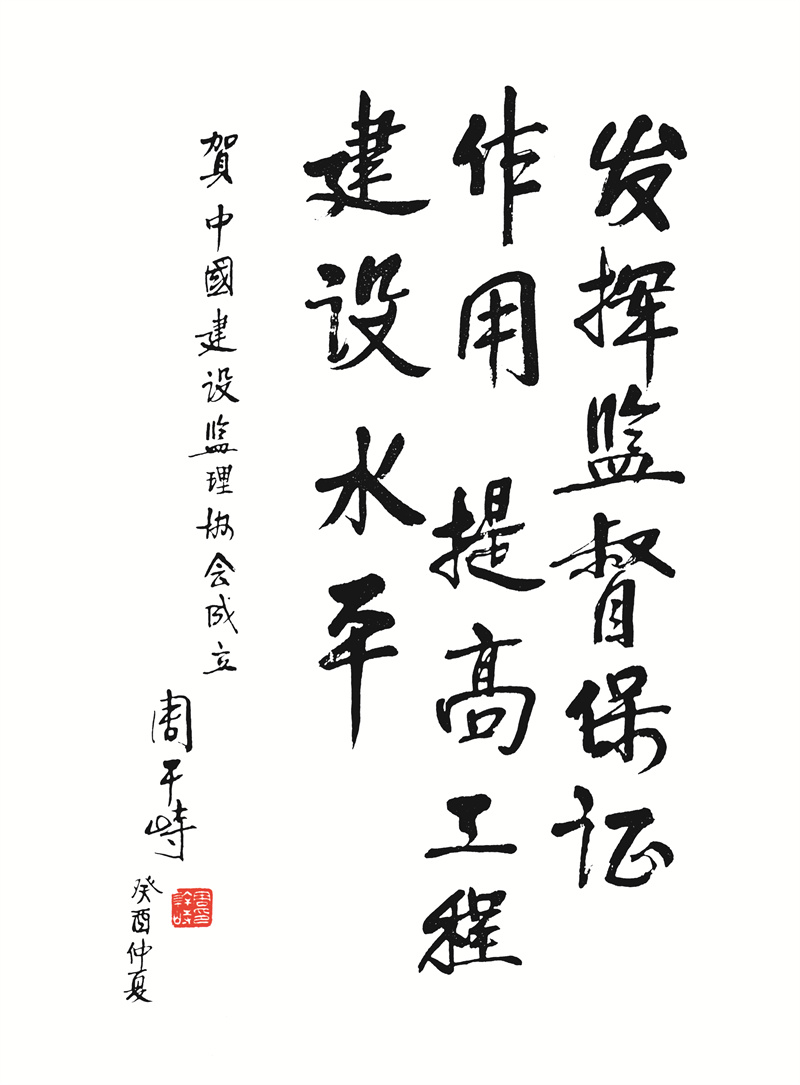 发挥监督保证
作用 提高工程
建设水平
賀中國建设监理协会成立
周干峙
癸酉仲夏